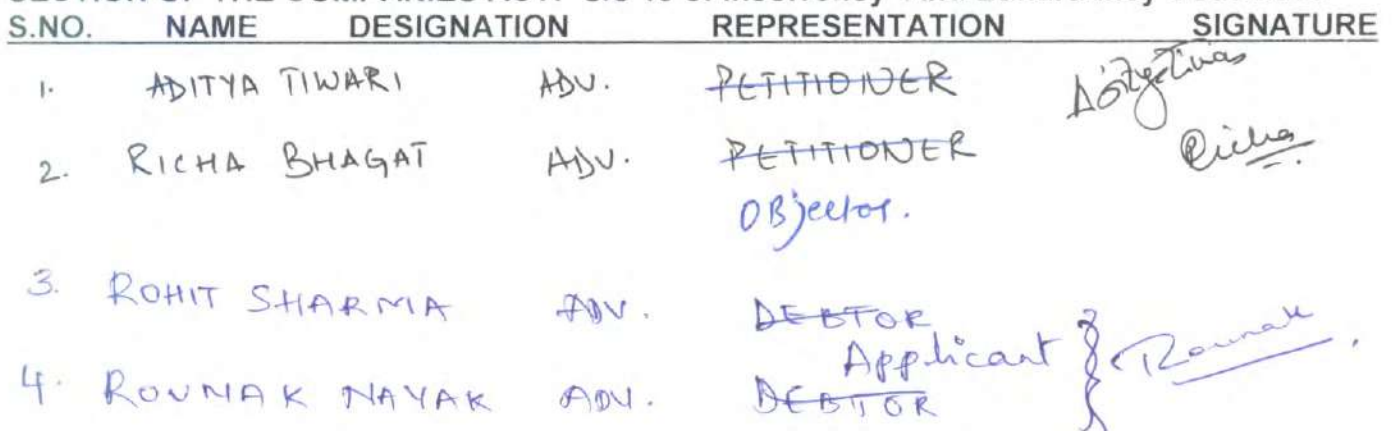 S.NO. NAME DESIGNATION REPRESENTATION SIGNATURE
1. ADITYA TIWARI ADV. PETITIONER
2. RICHA BHAGAT ADV. PETITIONER Richa
OBjector.
3. ROHIT SHARMA ADV. DEBTOR
Applicant Rounak
4. ROUNAK NAYAK ADV. DEBTOR